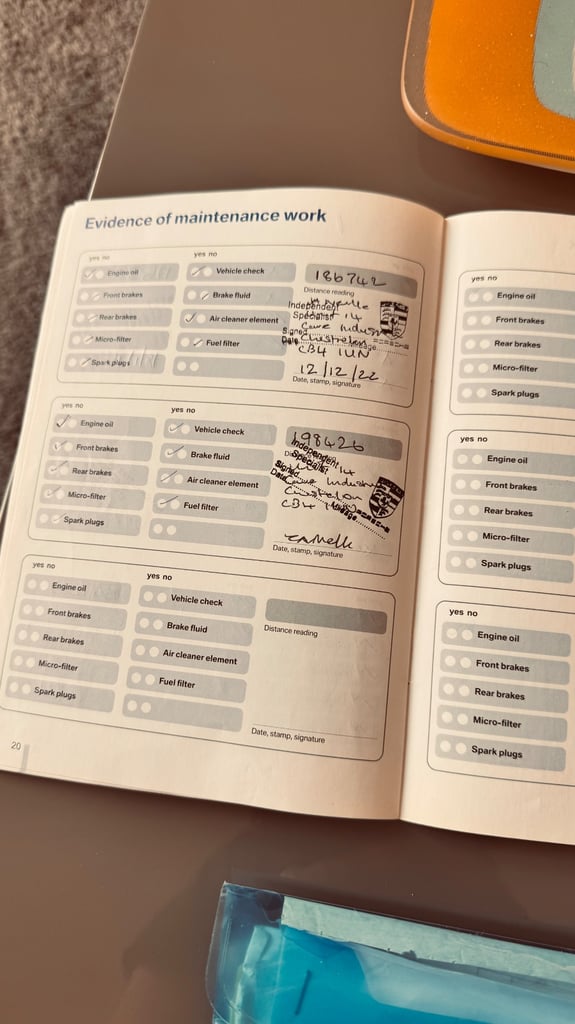 Evidence of maintenance work
yes no
yes no
Engine oil
Vehicle check
186742
Distance reading
Front brakes
Brake fluid
Independent
Specialist
Rear brakes
Air cleaner element
Signed
Date
Micro-filter
Fuel filter
CB4 1UN
Spark plugs
12/12/22
Date, stamp, signature
yes no
yes no
Engine oil
Vehicle check
198426
Front brakes
Brake fluid
Independent
Specialist
Rear brakes
Air cleaner element
Signed
Date
Micro-filter
Fuel filter
CB4
Spark plugs
Date, stamp, signature
yes no
yes no
Engine oil
Vehicle check
Front brakes
Brake fluid
Distance reading
Rear brakes
Air cleaner element
Micro-filter
Fuel filter
Spark plugs
Date, stamp, signature
20
yes no
Engine oil
Front brakes
Rear brakes
Micro-filter
Spark plugs
yes no
Engine oil
Front brakes
Rear brakes
Micro-filter
Spark plugs
yes no
Engine oil
Front brakes
Rear brakes
Micro-filter
Spark plugs